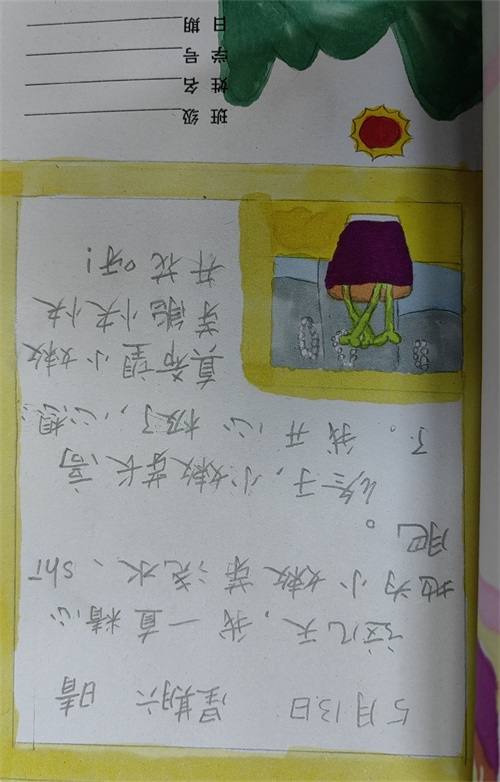 5月13日 星期六 晴
这几天,我一直精心
地为小嫩芽浇水、shī
肥。
子,小嫩芽长高
了。我开心极了,心想:
真希望小嫩
芽能快快
开花呀!
班级
姓名
学号
日期